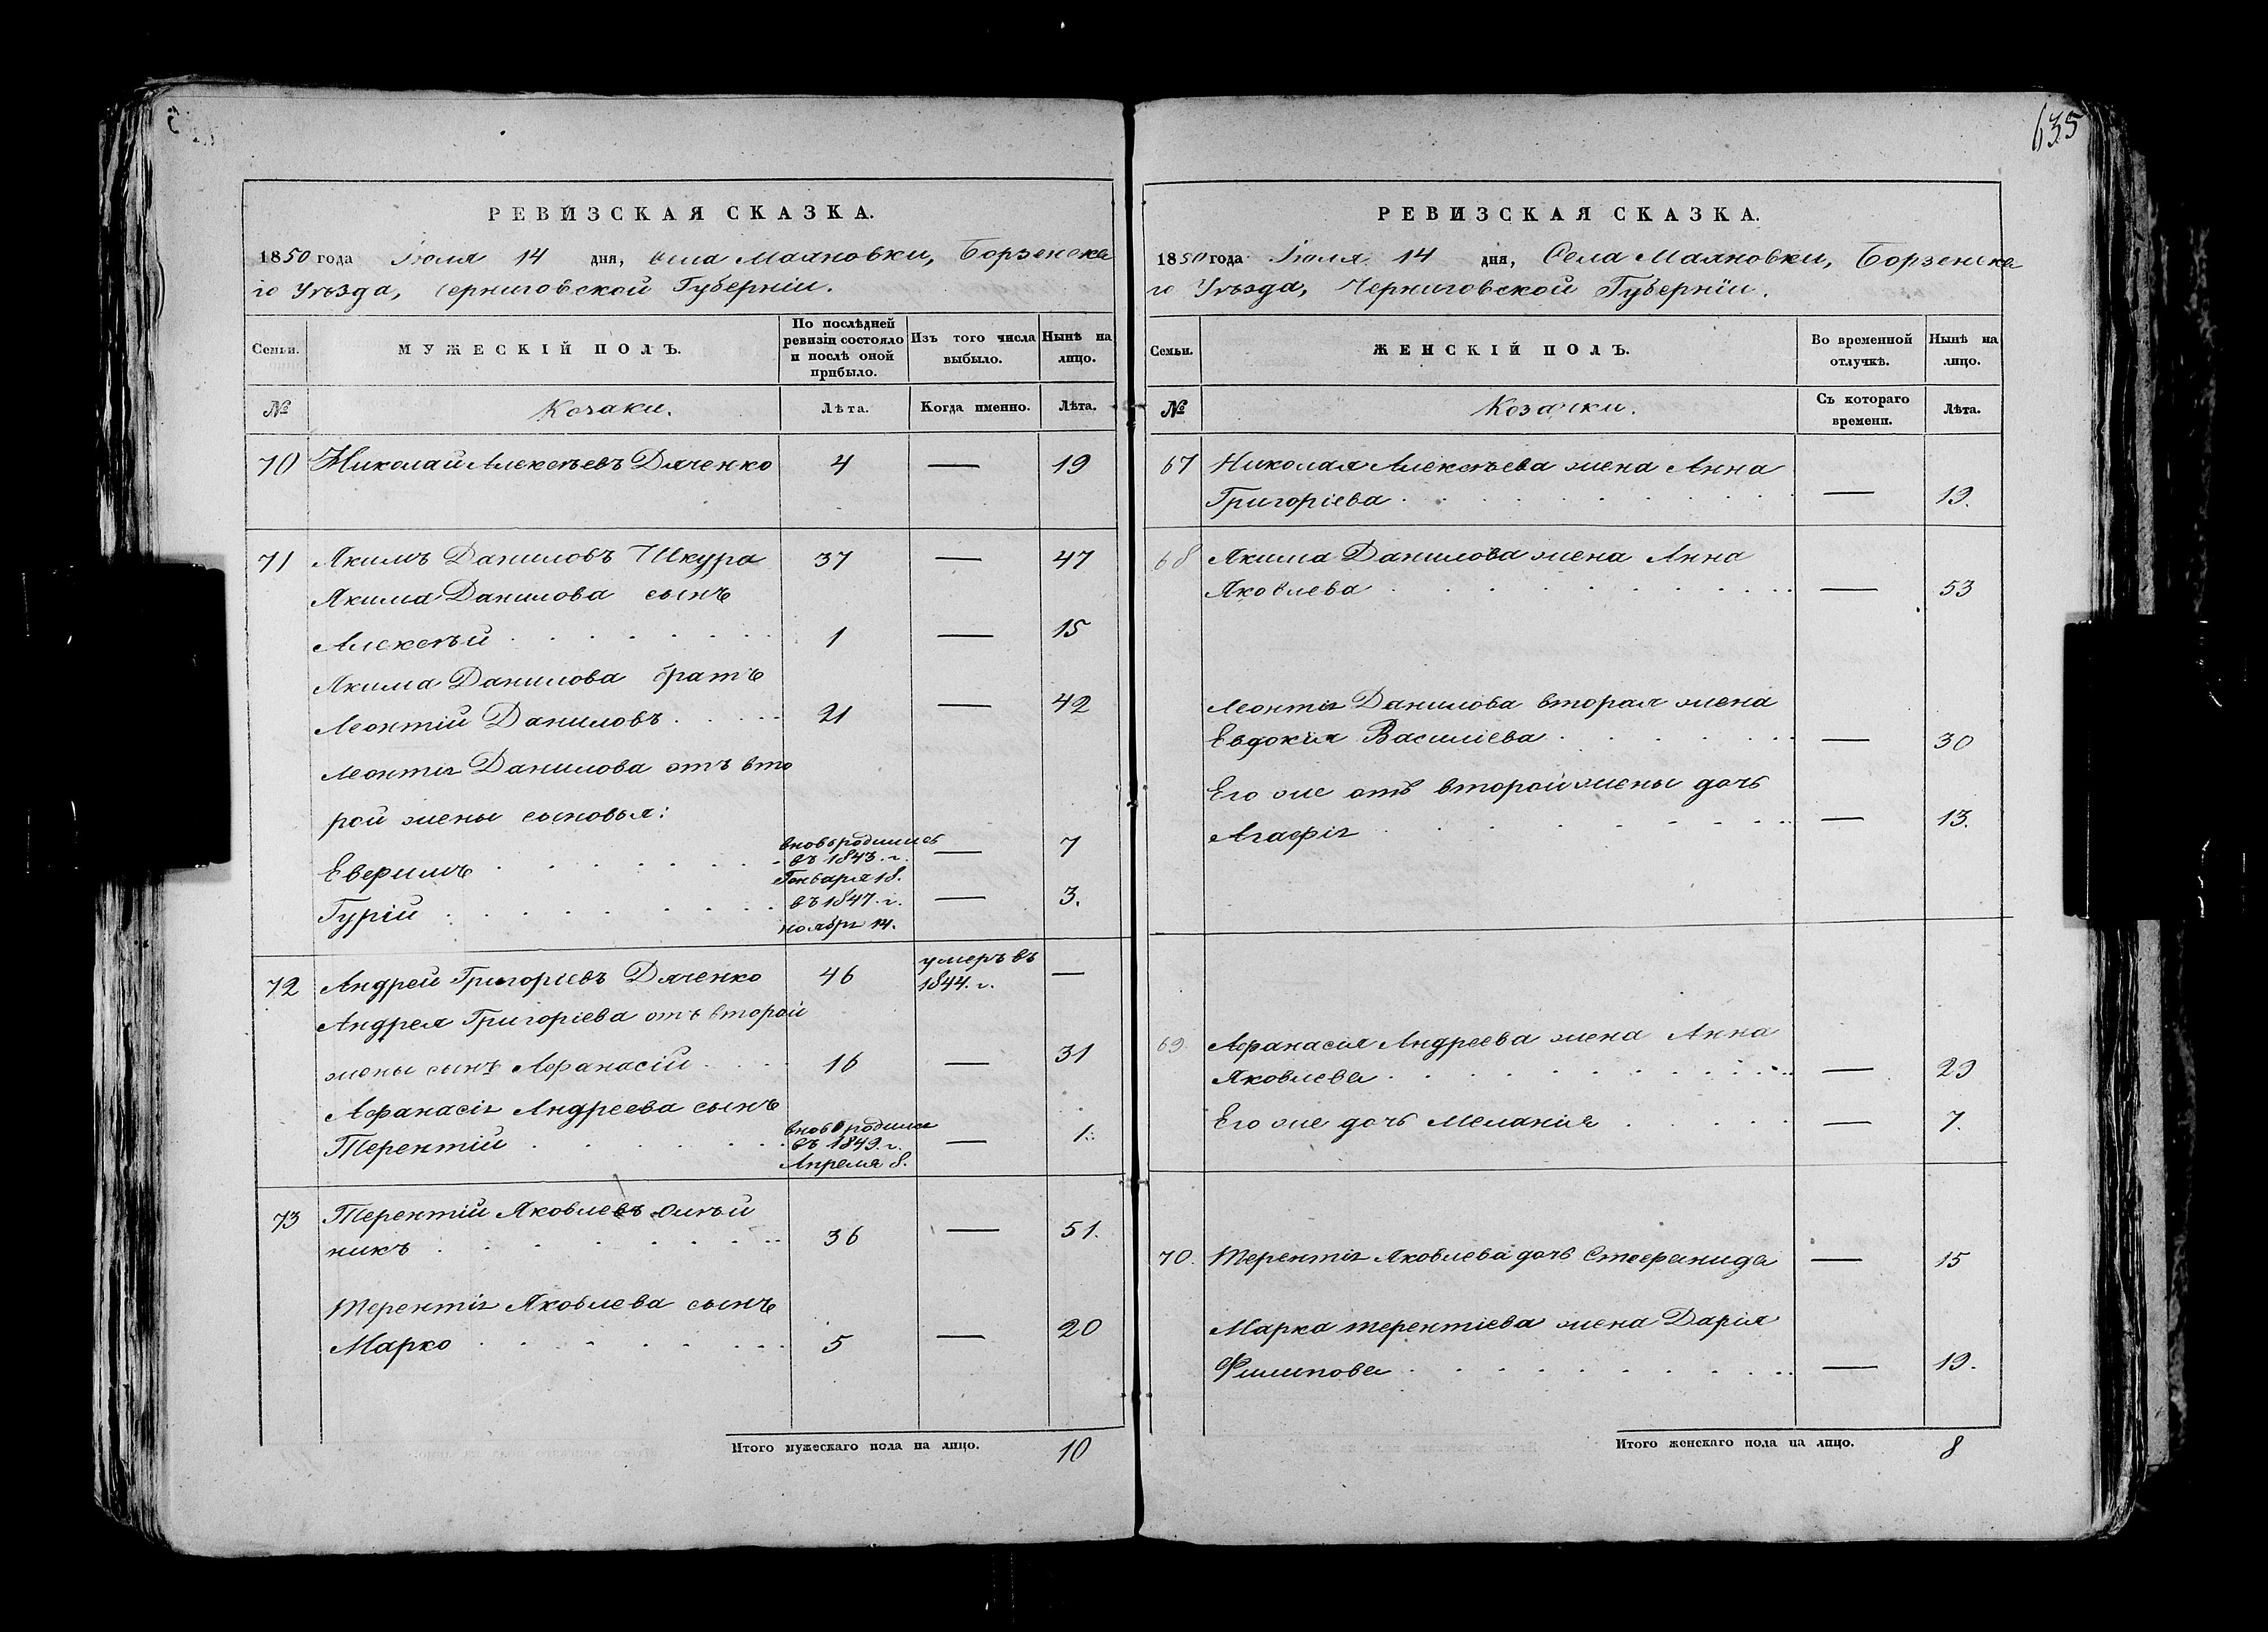 635
РЕВИЗСКАЯ СКАЗКА.
1850 года Іюля 14 дня, Села Маяновки, Борзенска
го Уѣзда, Черниговской Губерніи.
Семьи. МУЖЕСКІЙ ПОЛЪ. По послѣдней ревизіи состояло и послѣ оной прибыло. Изъ того числа выбыло. Нынѣ на лицо.
№ Козаки. Лѣта. Когда именно. Лѣта.
70 Николай Алексѣевъ Дяченко 4 — 19
71 Якимъ Даниловъ Шкура 37 — 47
Якима Данилова сынъ
Алексѣй 1 — 15
Якима Данилова братъ
Леонтій Даниловъ 21 — 42
Леонтія Данилова отъ вто
рой жены сыновья:
Евфимъ вновь родились въ 1843. г. Генваря 18. — 7
Гурій въ 1847. г. ноября 14. — 3.
72 Андрей Григоріевъ Дяченко 46 умеръ въ 1844. г. —
Андрея Григоріева отъ второй
жены сынъ Афанасій 16 — 31
Афанасія Андреева сынъ
Терентій вновь родился въ 1849. г. Апреля 8. — 1.
73 Терентій Яковлевъ Олѣй
никъ 36 — 51.
Терентія Яковлева сынъ
Марко 5 — 20
Итого мужескаго пола на лицо. 10
РЕВИЗСКАЯ СКАЗКА.
1850 года Іюля 14 дня, Села Маяновки, Борзенска
го Уѣзда, Черниговской Губерніи.
Семьи. ЖЕНСКІЙ ПОЛЪ. Во временной отлучкѣ. Нынѣ на лицо.
№ Козачки. Съ котораго времени. Лѣта.
67 Николая Алексѣева жена Анна
Григоріева — 19.
68 Якима Данилова жена Анна
Яковлева — 53
Леонтія Данилова вторая жена
Евдокія Василіева — 30
Его же отъ второй жены дочь
Агафія — 13.
69. Афанасія Андреева жена Анна
Яковлева — 29
Его же дочь Меланія — 7.
70. Терентія Яковлева дочь Стефанида — 15
Марка Терентіева жена Дарія
Филипова — 19.
Итого женскаго пола на лицо. 8